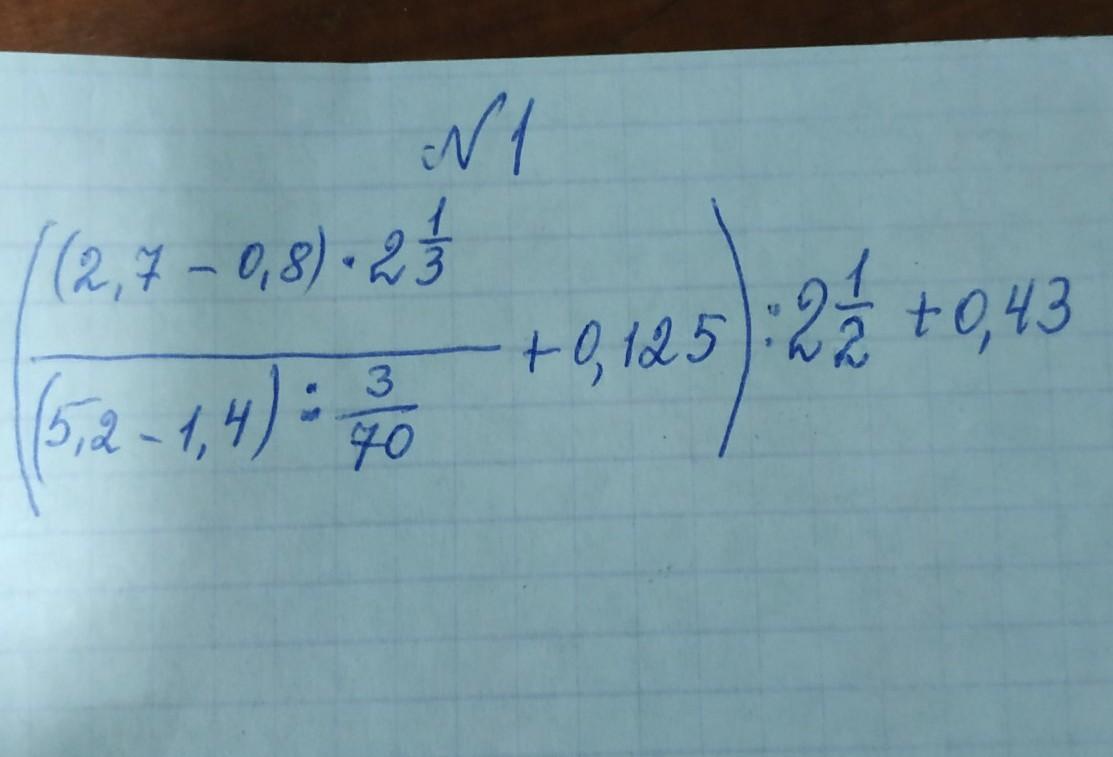 №1
(((2,7 - 0,8) · 2 1/3) / ((5,2 - 1,4) : 3/70) + 0,125) : 2 1/2 + 0,43